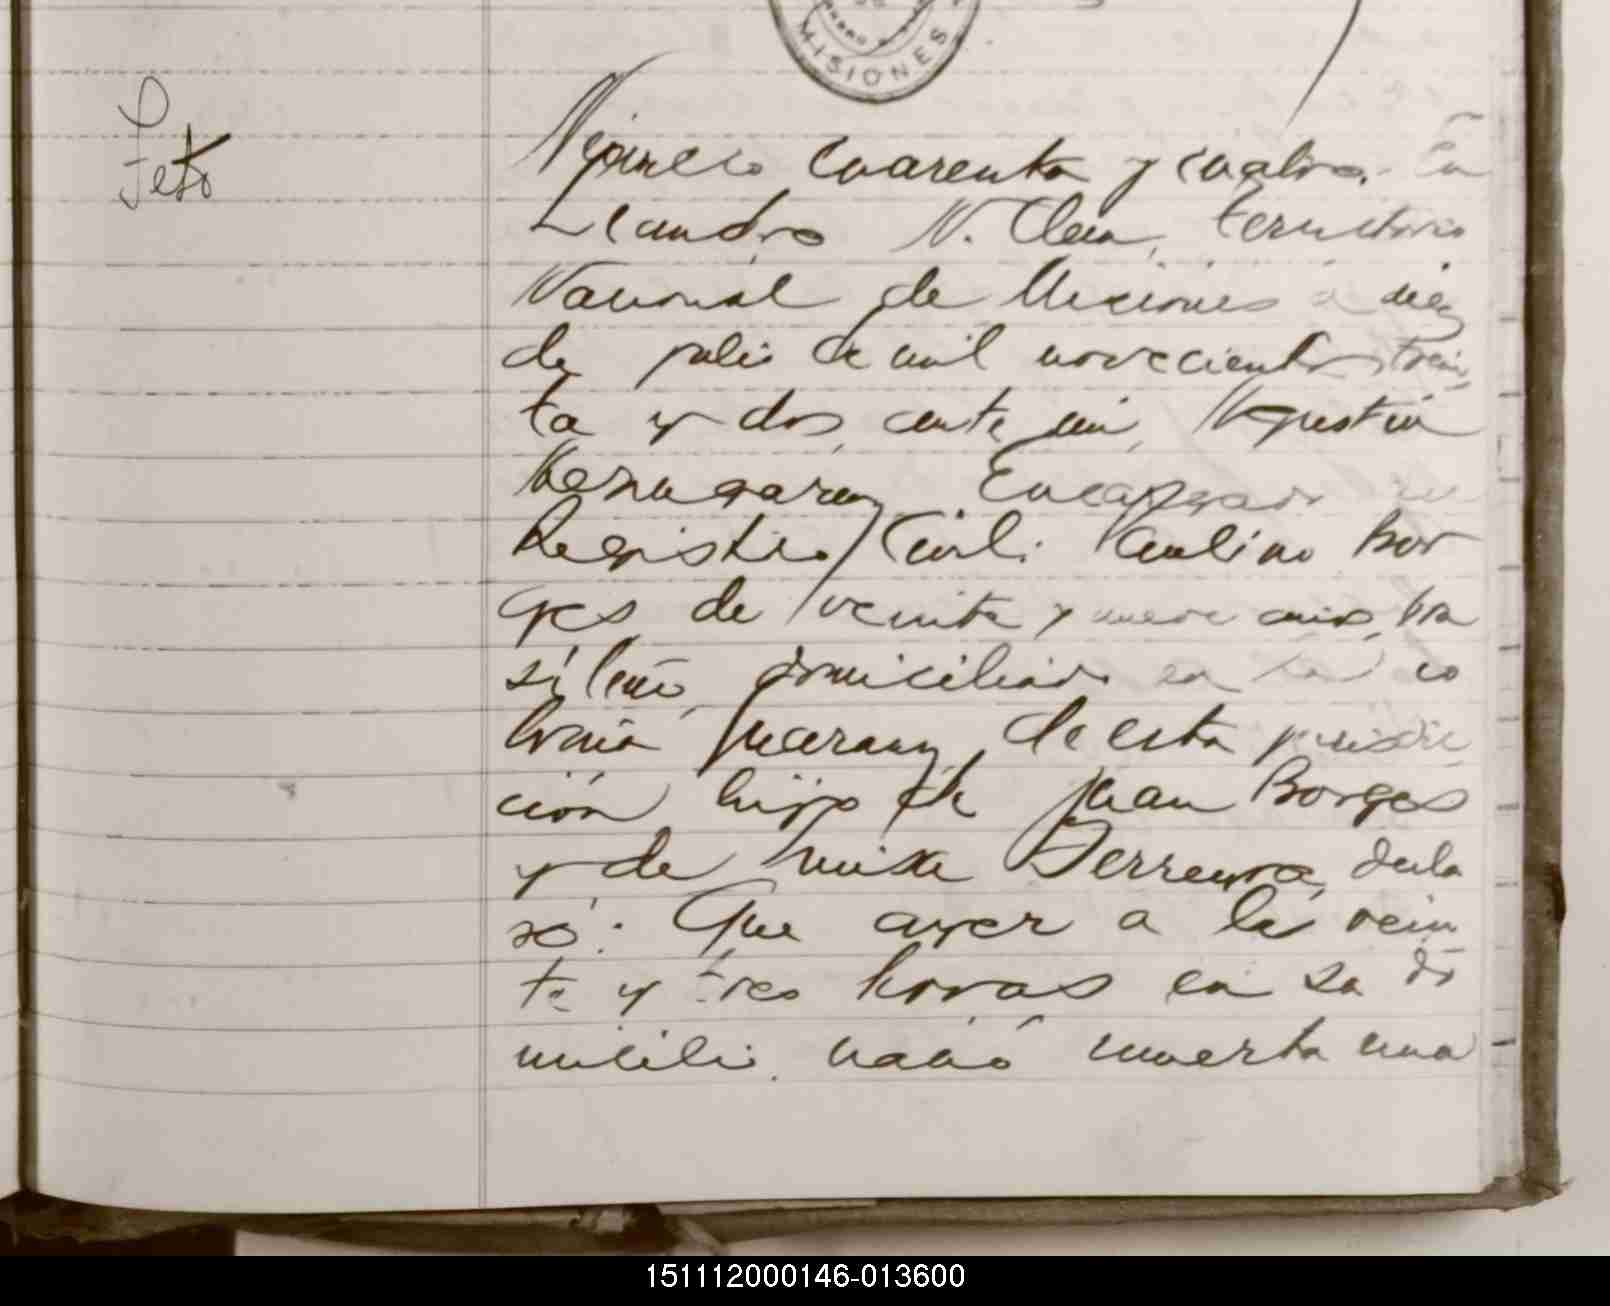 MISIONES
Feto
Número cuarenta y cuatro. En
Leandro N. Alem, Territorio
Nacional de Misiones a diez
de julio de mil novecientos trein
ta y dos, ante mi, Agustin
Encargado del
Registro Civil: Paulino Bor
ges de veinte y nueve años, bra
sileño, domiciliado en la co
lonia Yucaray, de esta jurisdic
ción hijo de Juan Borges
y de Luisa Ferreyra, decla
ró: Que ayer a la vein
te y tres horas en su do
micilio nació muerta una
151112000146-013600